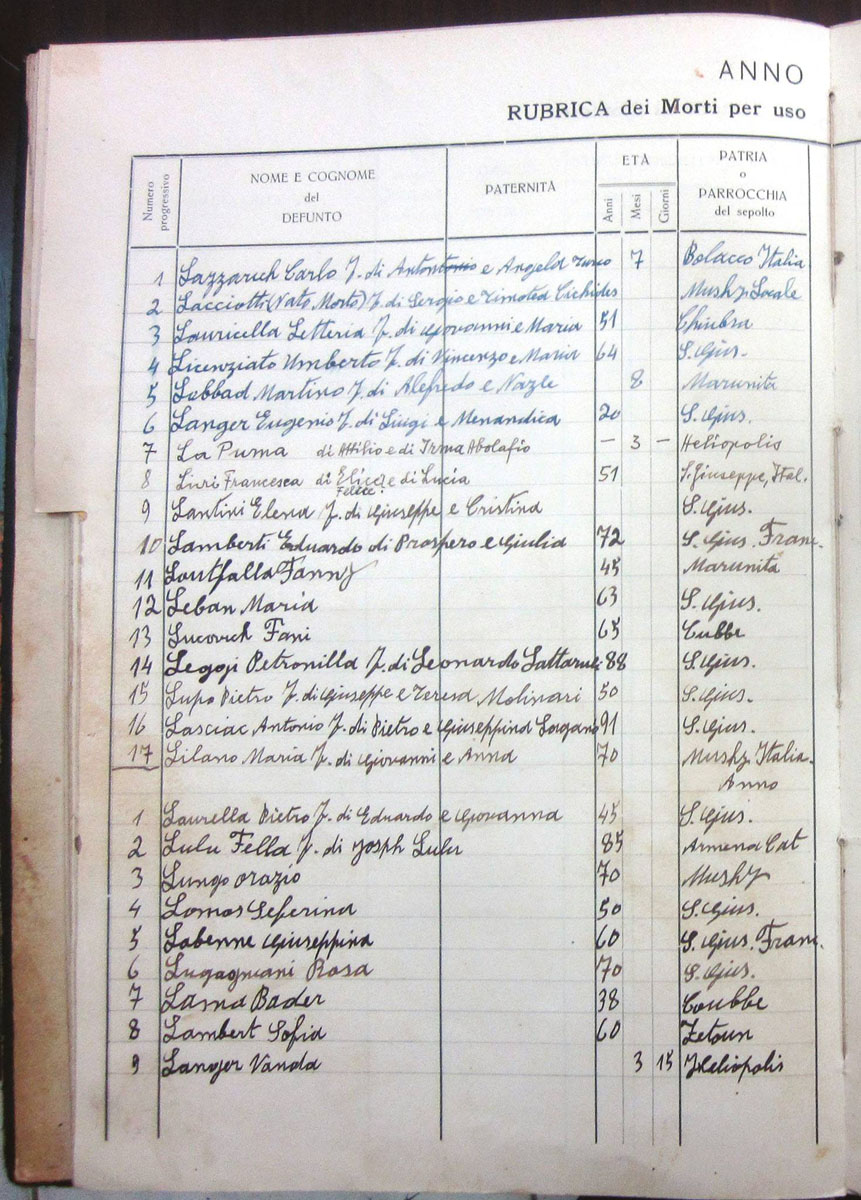 ANNO
RUBRICA dei Morti per uso
Numero progressivo
NOME E COGNOME
del
DEFUNTO
PATERNITÀ
ETÀ
Anni
Mesi
Giorni
PATRIA
o
PARROCCHIA
del sepolto
1 Lazzarich Carlo f. di Antontonio e Angela 7 Bolacco Italia
2 Lacciotti (Nato Morto) f. di Sergio e Timotea Cichides Mushy Locale
3 Lauricella Letteria f. di Giovanni e Maria 51 Chiubra
4 Licenziato Umberto f. di Vincenzo e Maria 64 S. Gius.
5 Labbad Martino f. di Alefredo e Nazle 8 Marunita
6 Langer Eugenio f. di Luigi e Menandica 20 S. Gius.
7 La Puma di Attilio e di Irma Abolafio — 3 — Heliopolis
8 Livi Francesca di Elice e di Lucia 51 S. Giuseppe, Ital.
Felice?
9 Santini Elena f. di Giuseppe e Cristina S. Gius.
10 Lamberti Eduardo di Prospero e Giulia 72 S. Gius. Franc.
11 Loutfalla Fanny 45 Marunita
12 Leban Maria 63 S. Gius.
13 Lucovich Fani 65 Cubbe
14 Leggi Petronilla f. di Leonardo Lattaruli 88 S. Gius.
15 Lupo Pietro f. di Giuseppe e Teresa Molinari 50 S. Gius.
16 Lasciac Antonio f. di Pietro e Giuseppina Lagano 91 S. Gius.
17 Lilano Maria f. di Giovanni e Anna 70 Mushy Italia.
Anno
1 Laurella Pietro f. di Eduardo e Giovanna 45 S. Gius.
2 Lulu Fella f. di Joseph Lulu 85 Armena Cat
3 Lungo Orazio 70 Mushy
4 Lomas Seferina 50 S. Gius.
5 Labenne Giuseppina 60 S. Gius. Franc.
6 Lugagnani Rosa 70 S. Gius.
7 Lama Bader 38 Coubbe
8 Lambert Sofia 60 Zetoun
9 Langer Vanda 3 15 Heliopolis